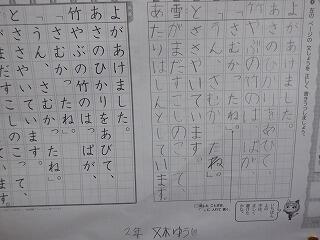 よがあけました。
あさのひかりをあびて、
竹やぶの竹のはっぱが、
「さむかったね。」
「うん、さむかったね。」
とささやいています。
雪がまだすこしのこって、
あたりはしんとしています。
よがあけました。
あさのひかりをあびて、
竹やぶの竹のはっぱが、
「さむかったね。」
「うん、さむかったね。」
とささやいています。
がまだすこしのこって、
2年